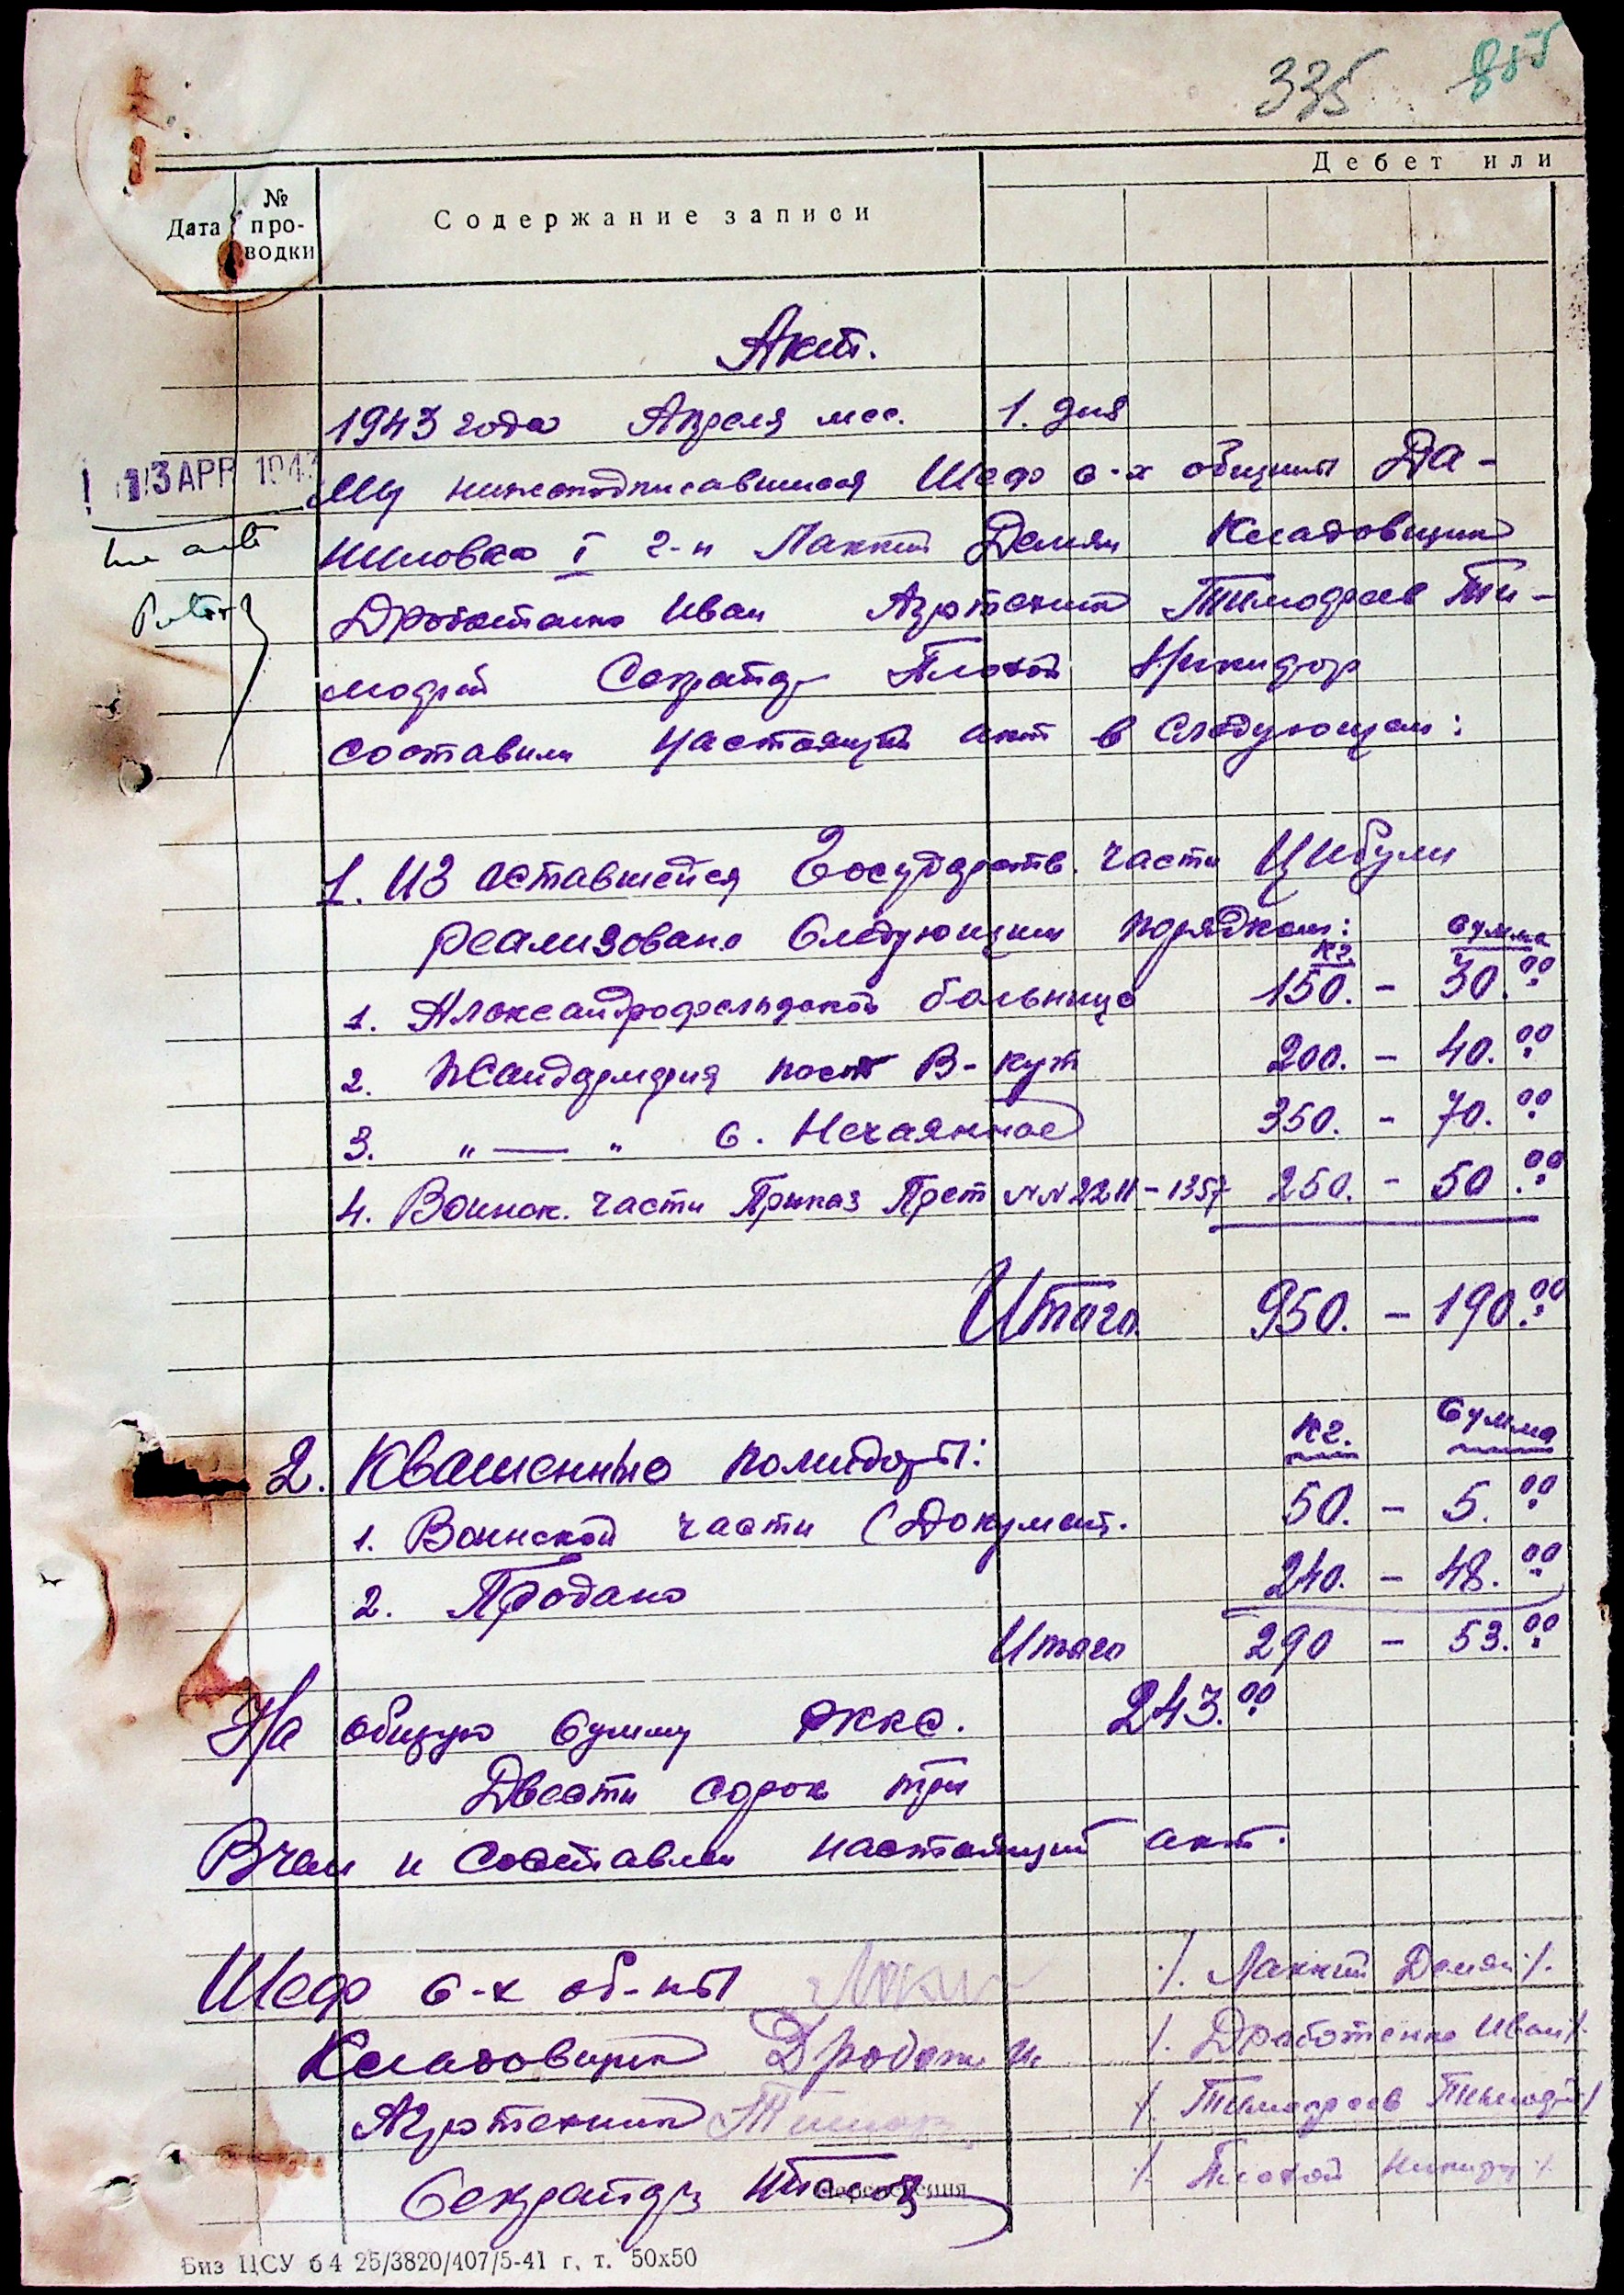 335 855
Дебет или
Дата
№ про-водки
Содержание записи
Акт.
1943 года Апреля мес. 1. дня
13 APR 194
Мы нижеподписавшиеся Шеф с-х общины Да-
ниловка I г-н Лаккий Демян Кладовщик
Дроботенко Иван Агротехник Тимофеев Ти-
мофей Секретарь Плохой Никифор
составили настоящий акт в следующем:
1. Из оставшейся Государств. части Цибули
реализовано следующим порядком: кг. Сумма
1. Александрофельдской больнице 150. - 30.00
2. Жандармерия пост В-Кут 200. - 40.00
3. " — " с. Нечаянное 350. - 70.00
4. Воинск. части Приказ Прет NN 2211-1357 250. - 50.00
Итого 950. - 190.00
кг. Сумма
2. Квашенные помидоры:
1. Воинской части (Документ. 50. - 5.00
2. Продано 240. - 48.00
Итого 290 - 53.00
На общую сумму РККС. 243.00
Двести сорок три
В чем и составлен настоящий акт.
Шеф с-х об-ны /. Лаккий Демян /.
Кладовщик Дробот /. Дроботенко Иван /.
Агротехник Тимоф /. Тимофеев Тимофей /
Секретарь /. Плохой Никифор /.
Биз ЦСУ б4 25/3820/407/5-41 г. т. 50х50